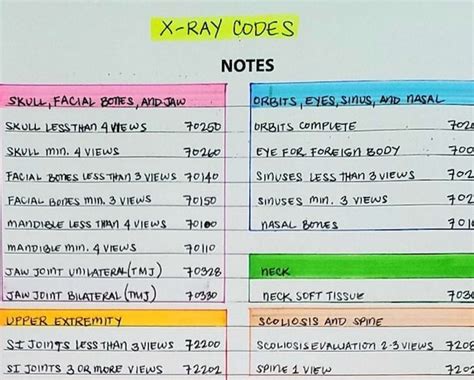 X-RAY CODES
NOTES
SKULL, FACIAL BONES, AND JAW
SKULL LESS THAN 4 VIEWS 70250
SKULL MIN. 4 VIEWS 70260
FACIAL BONES LESS THAN 3 VIEWS 70140
FACIAL BONES MIN. 3 VIEWS 70150
MANDIBLE LESS THAN 4 VIEWS 70100
MANDIBLE MIN. 4 VIEWS 70110
JAW JOINT UNILATERAL (TMJ) 70328
JAW JOINT BILATERAL (TMJ) 70330
UPPER EXTREMITY
SI JOINTS LESS THAN 3 VIEWS 72200
SI JOINTS 3 OR MORE VIEWS 72202
ORBITS, EYES, SINUS, AND NASAL
ORBITS COMPLETE 7020
EYE FOR FOREIGN BODY 700
SINUSES LESS THAN 3 VIEWS 702
SINUSES MIN. 3 VIEWS 702
NASAL BONES 701
NECK
NECK SOFT TISSUE 703
SCOLIOSIS AND SPINE
SCOLIOSIS EVALUATION 2-3 VIEWS 7208
SPINE 1 VIEW 720